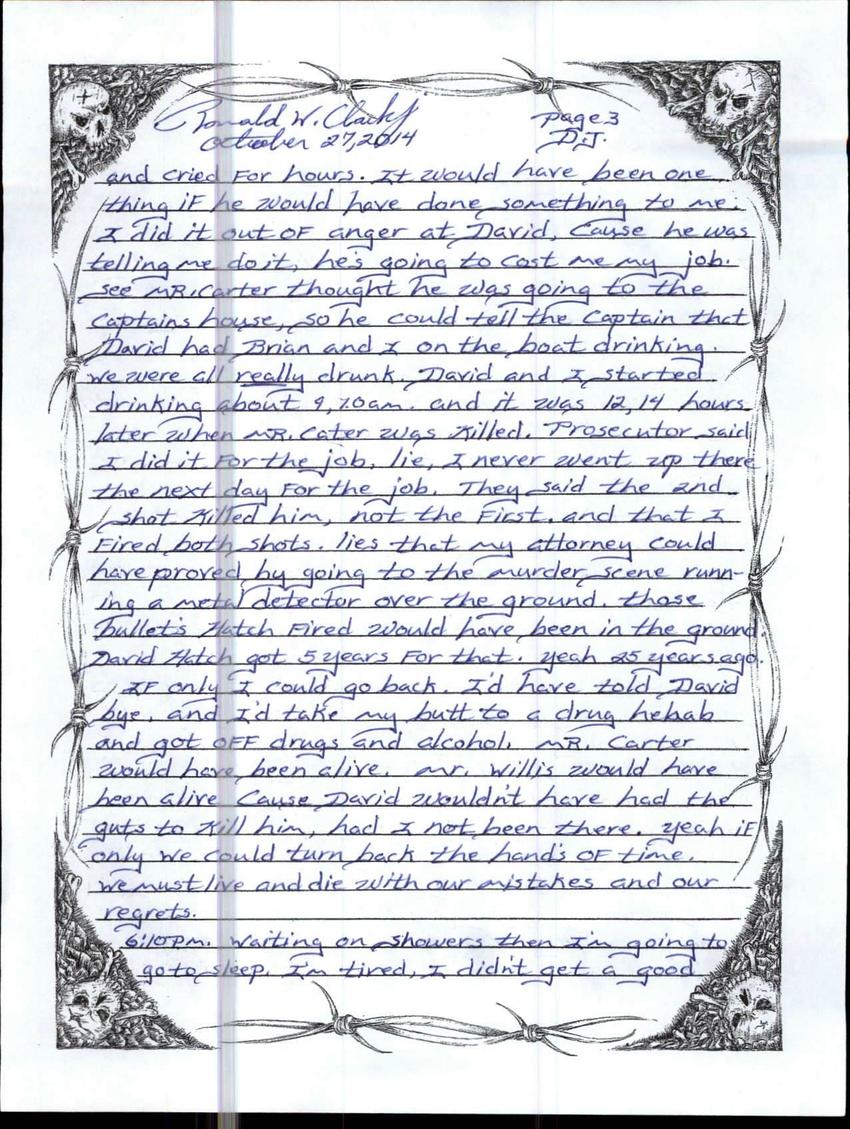 Ronald W. Clark Jr
October 27, 2014
Page 3
D.J.
and cried For hours. It would have been one
thing iF he would have done something to me.
I did it out OF anger at David, Cause he was
telling me do it, he's going to cost me my job.
see MR. Carter thought he was going to the
Captains house, so he could tell the Captain that
David had Brian and I on the boat drinking.
we were all really drunk. David and I started
drinking about 9, 10 am. and it was 12, 14 hours
later when MR. Cater was Killed. Prosecutor said
I did it For the job. lie, I never went up there
the next day For the job. They said the 2nd
shot Killed him, not the First. and that I
Fired both shots. lies that my attorney could
have proved by going to the murder scene runn-
ing a metal detector over the ground. those
bullet's Hatch Fired would have been in the ground.
David Hatch got 5 years For that. yeah 25 years ago.
IF only I could go back. I'd have told David
bye. and I'd take my butt to a drug hehab
and got OFF drugs and alcohol. MR. Carter
would have been alive. mr. Willis would have
been alive Cause David wouldn't have had the
guts to Kill him, had I not been there. yeah iF
only we could turn back the hand's OF time.
we must live and die with our mistakes and our
regrets.
6:10 pm. waiting on showers then I'm going to
go to sleep. I'm tired, I didn't get a good